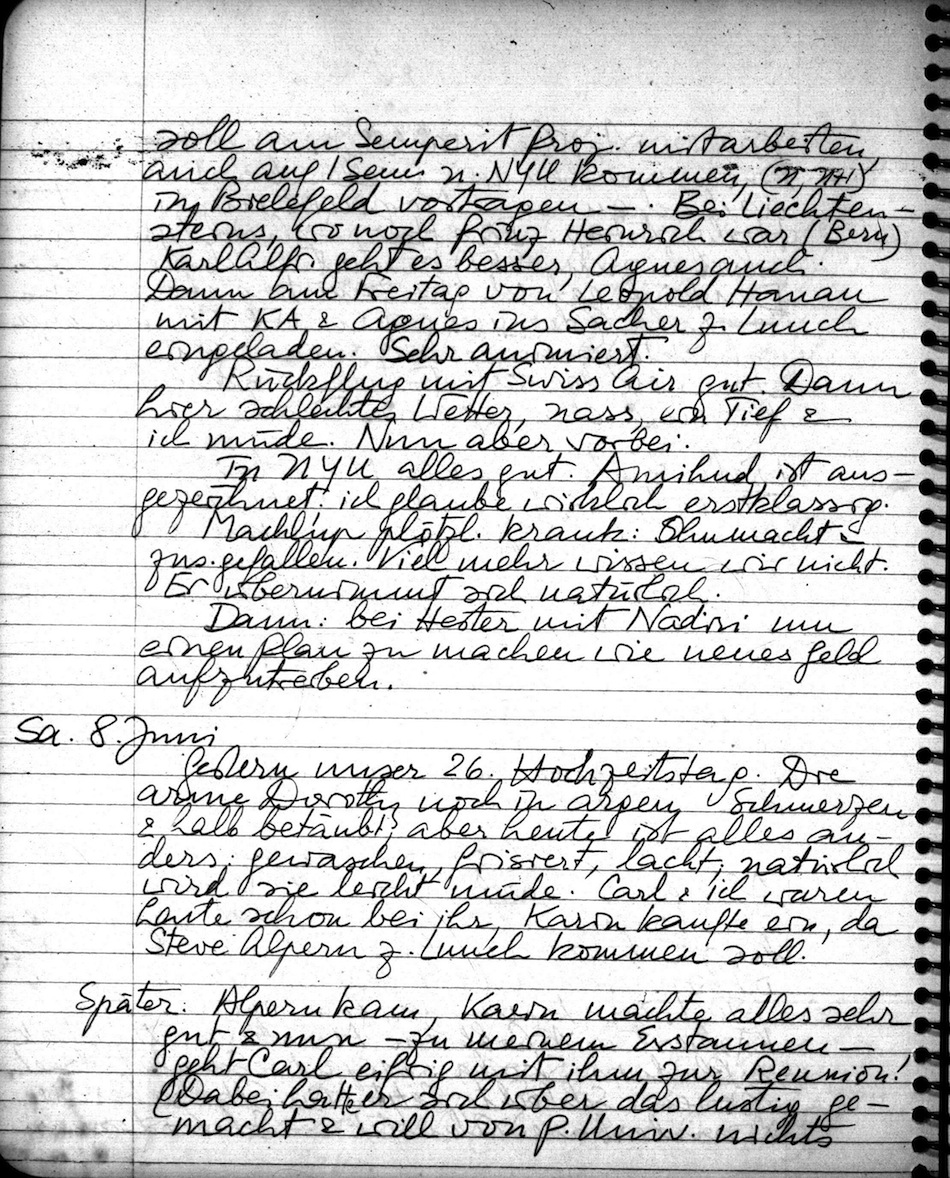 soll am Semperit Proj. mitarbeiten,
auch auf 1 Sem n. NYU kommen,
in Bielefeld vortragen —. Bei Liechten-
steins, wo noch Prinz Heinrich war (Bern)
Karl Alfr. geht es besser, Agnes auch.
Dann am Freitag von Leopold Hanau
mit KA & Agnes ins Sacher z. Lunch
eingeladen. Sehr animiert.
Rückflug mit Swiss Air gut. Dann
hier schlechtes Wetter, nass, ein Tief &
ich müde. Nun aber vorbei.
In NYU alles gut. Amihud ist aus-
gezeichnet: ich glaube wirklich erstklassig.
Machlup plötzl. krank: Ohnmacht &
zus.gefallen. Viel mehr wissen wir nicht.
Er übernimmt sich natürlich.
Dann: bei Hester mit Nadiri um
einen Plan zu machen wie neues Geld
aufzutreiben.
Sa. 8. Juni
Gestern unser 26. Hochzeitstag. Die
arme Dorothy noch in argen Schmerzen
& halb betäubt; aber heute ist alles an-
ders: gewaschen, frisiert, lacht; natürlich
wird sie leicht müde. Carl & ich waren
heute schon bei ihr, Karin kaufte ein, da
Steve Alpern z. Lunch kommen soll.
Später: Alpern kam, Karin machte alles sehr
gut & nun — zu meinem Erstaunen —
geht Carl eifrig mit ihm zur Reunion!
(Dabei hatte er sich über das lustig ge-
macht & will von P. Univ. nichts